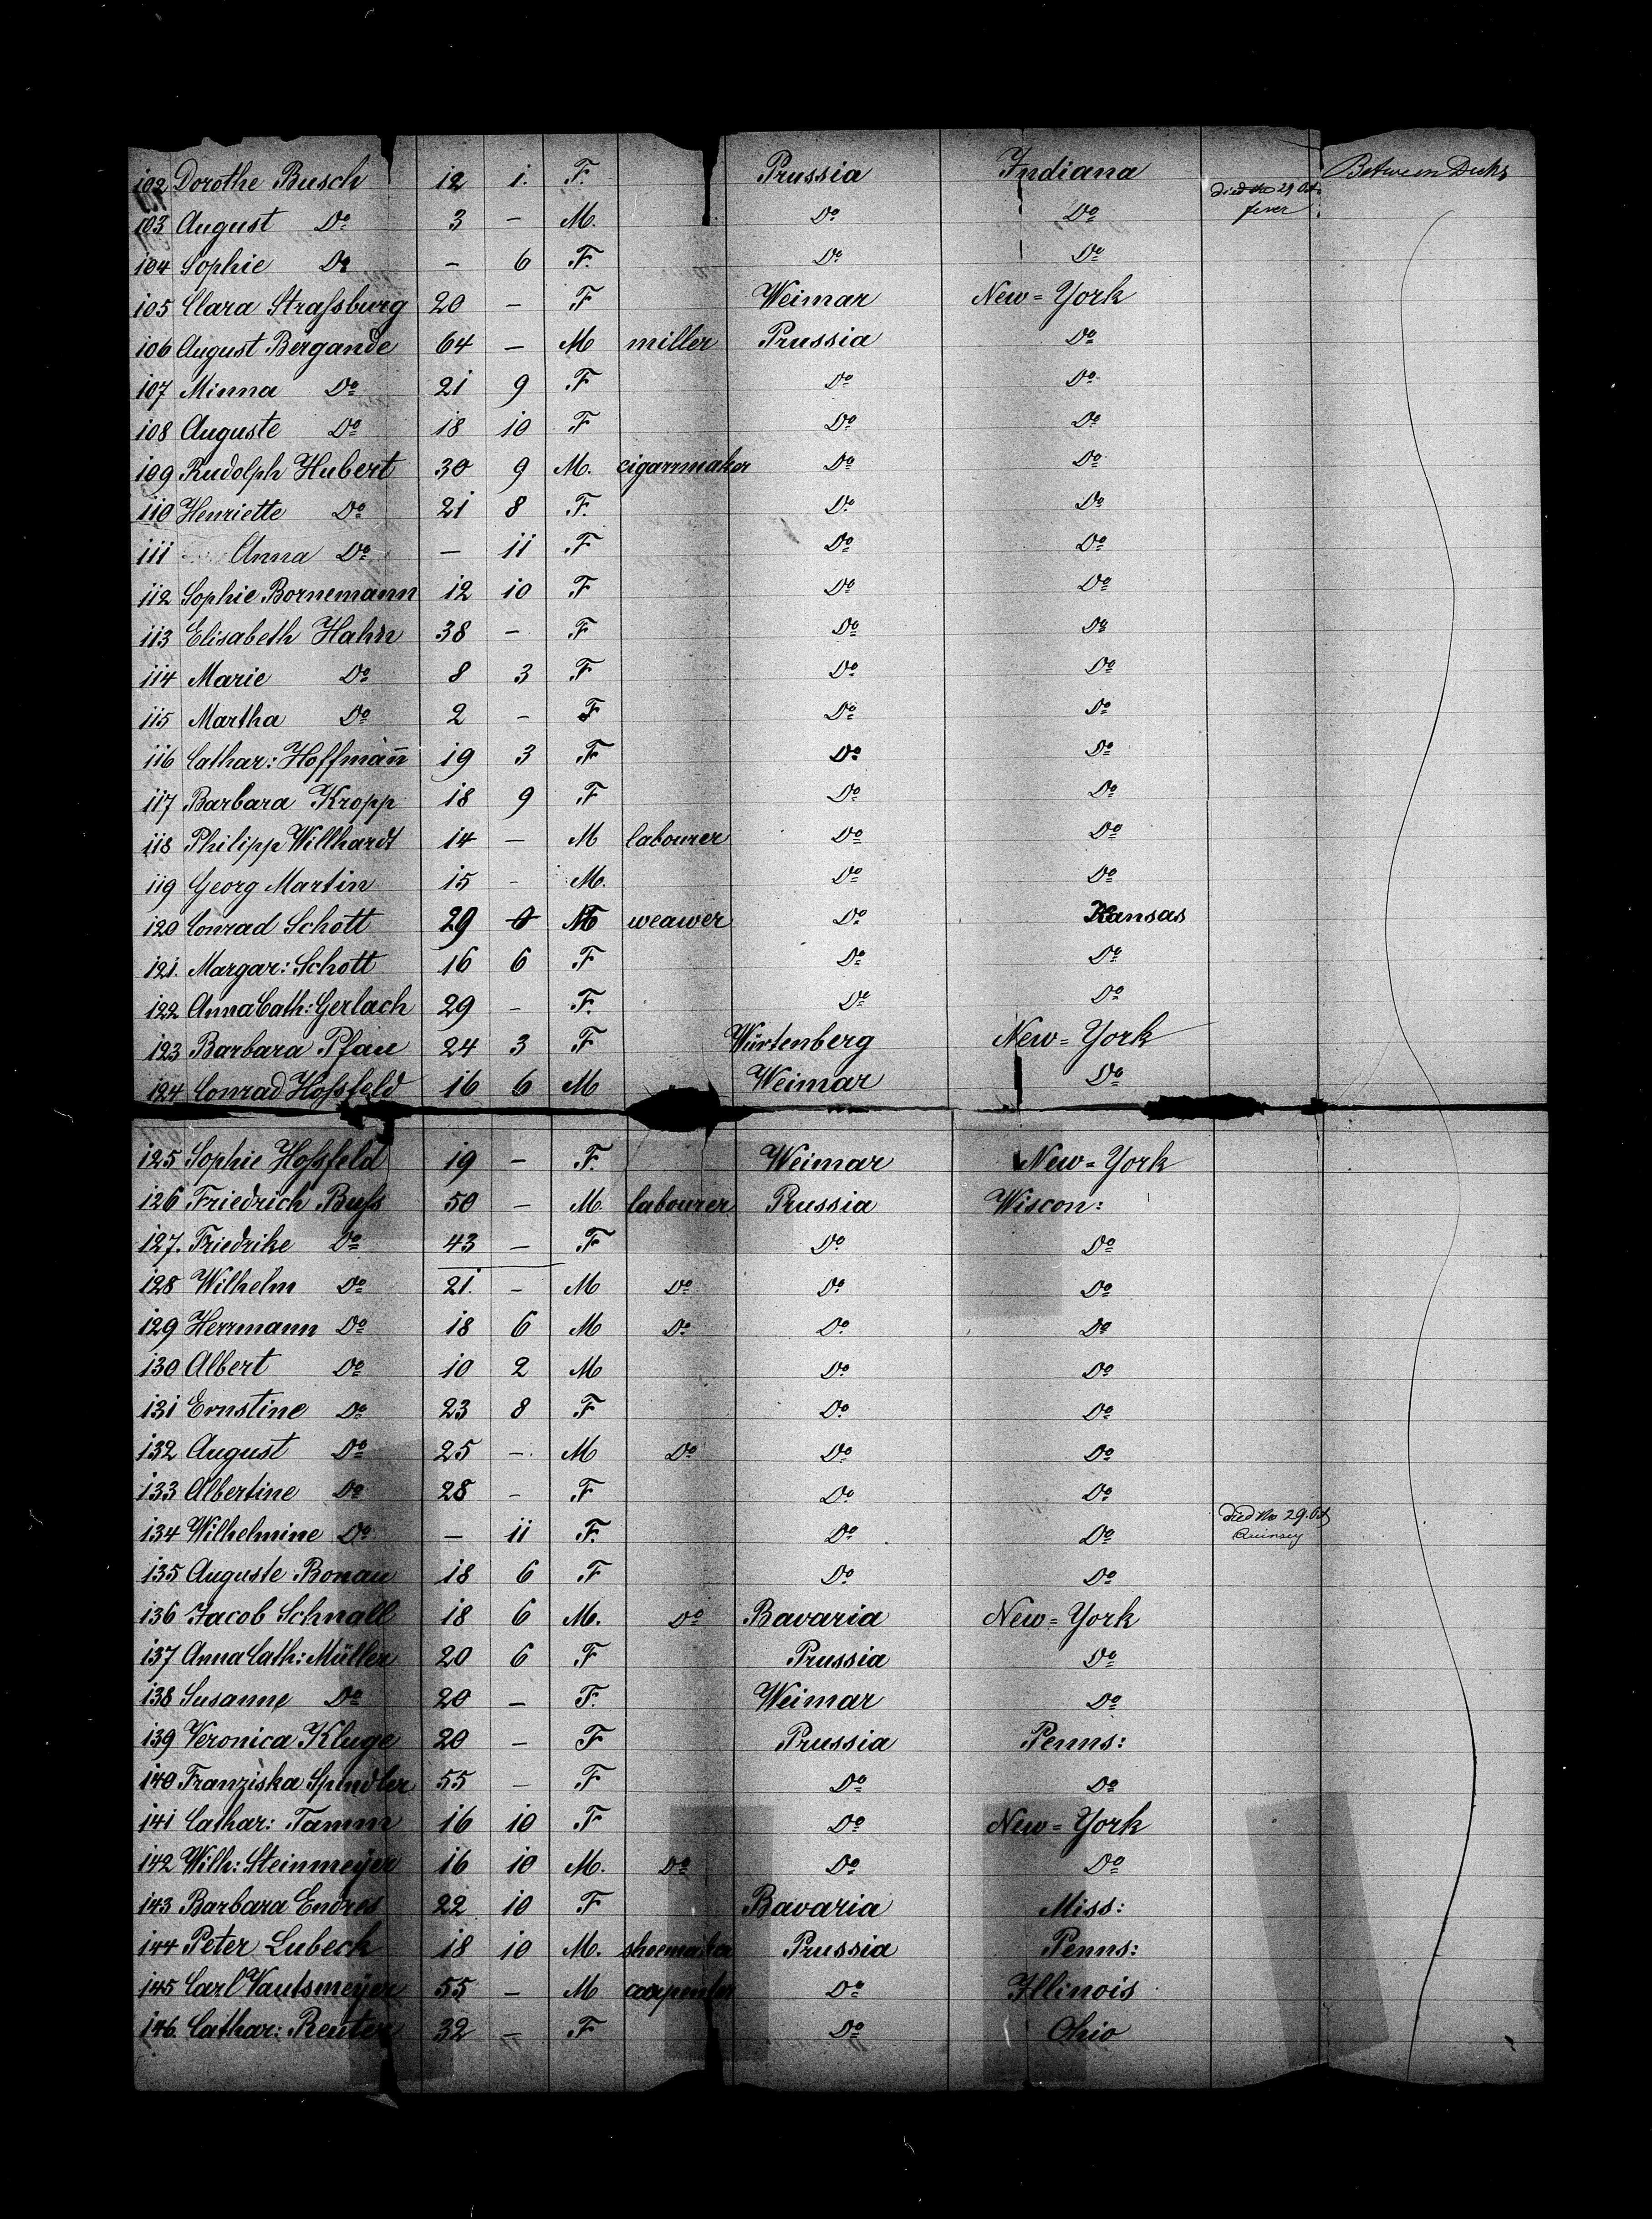 102 Dorothe Busch 12 1. F. Prussia Indiana Between Decks
103 August Do 3 – M. Do Do Died the 29 Oct. fever
104 Sophie Do – 6 F. Do Do
105 Clara Straſsburg 20 – F Weimar New=York
106 August Bergande 64 – M miller Prussia Do
107 Minna Do 21 9 F Do Do
108 Auguste Do 18 10 F Do Do
109 Rudolph Hubert 30 9 M. cigarrmaker Do Do
110 Henriette Do 21 8 F. Do Do
111 Anna Do – 11 F Do Do
112 Sophie Bornemann 12 10 F Do Do
113 Elisabeth Hahn 38 – F Do Do
114 Marie Do 8 3 F Do Do
115 Martha Do 2 – F Do Do
116 Cathar: Hoffman̅n̅ 19 3 F Do Do
117 Barbara Kropp 18 9 F Do Do
118 Philipp Willhardt 14 – M labourer Do Do
119 Georg Martin 15 – M. Do Do
120 Conrad Schott 29 M weawer Do Kansas
121. Margar: Schott 16 6 F Do Do
122 Anna Cath: Gerlach 29 – F. Do Do
123 Barbara Pfau 24 3 F Würtenberg New=York
124 Conrad Hoſsfeld 16 6 M Weimar Do
125 Sophie Hoſsfeld 19 – F. Weimar New=York
126 Friedrich Buſs 50 – M. labourer Prussia Wiscon:
127. Friedrike Do 43 – F Do Do
128 Wilhelm Do 21. – M Do Do Do
129 Herrmann Do 18 6 M Do Do Do
130 Albert Do 10 2 M Do Do
131 Ernstine Do 23 8 F Do Do
132 August Do 25 – M Do Do Do
133 Albertine Do 28 – F Do Do
134 Wilhelmine Do – 11 F. Do Do Died the 29. Oct Quinsey
135 Auguste Bonau 18 6 F Do Do
136 Jacob Schnall 18 6 M. Do Bavaria New=York
137 Anna Cath: Müller 20 6 F Prussia Do
138 Susanne Do 20 – F. Weimar Do
139 Veronica Kluge 20 – F Prussia Penns:
140 Franziska Spindler 55 – F Do Do
141 Cathar: Tamm 16 10 F Do New=York
142 Wilh: Steinmeÿer 16 10 M. Do Do Do
143 Barbara Endres 22 10 F Bavaria Miss:
144 Peter Lubeck 18 10 M. shoemaker Prussia Penns:
145 Carl Vautsmeÿer 55 – M carpenter Do Illinois
146. Cathar: Reuter 32 – F Do Ohio